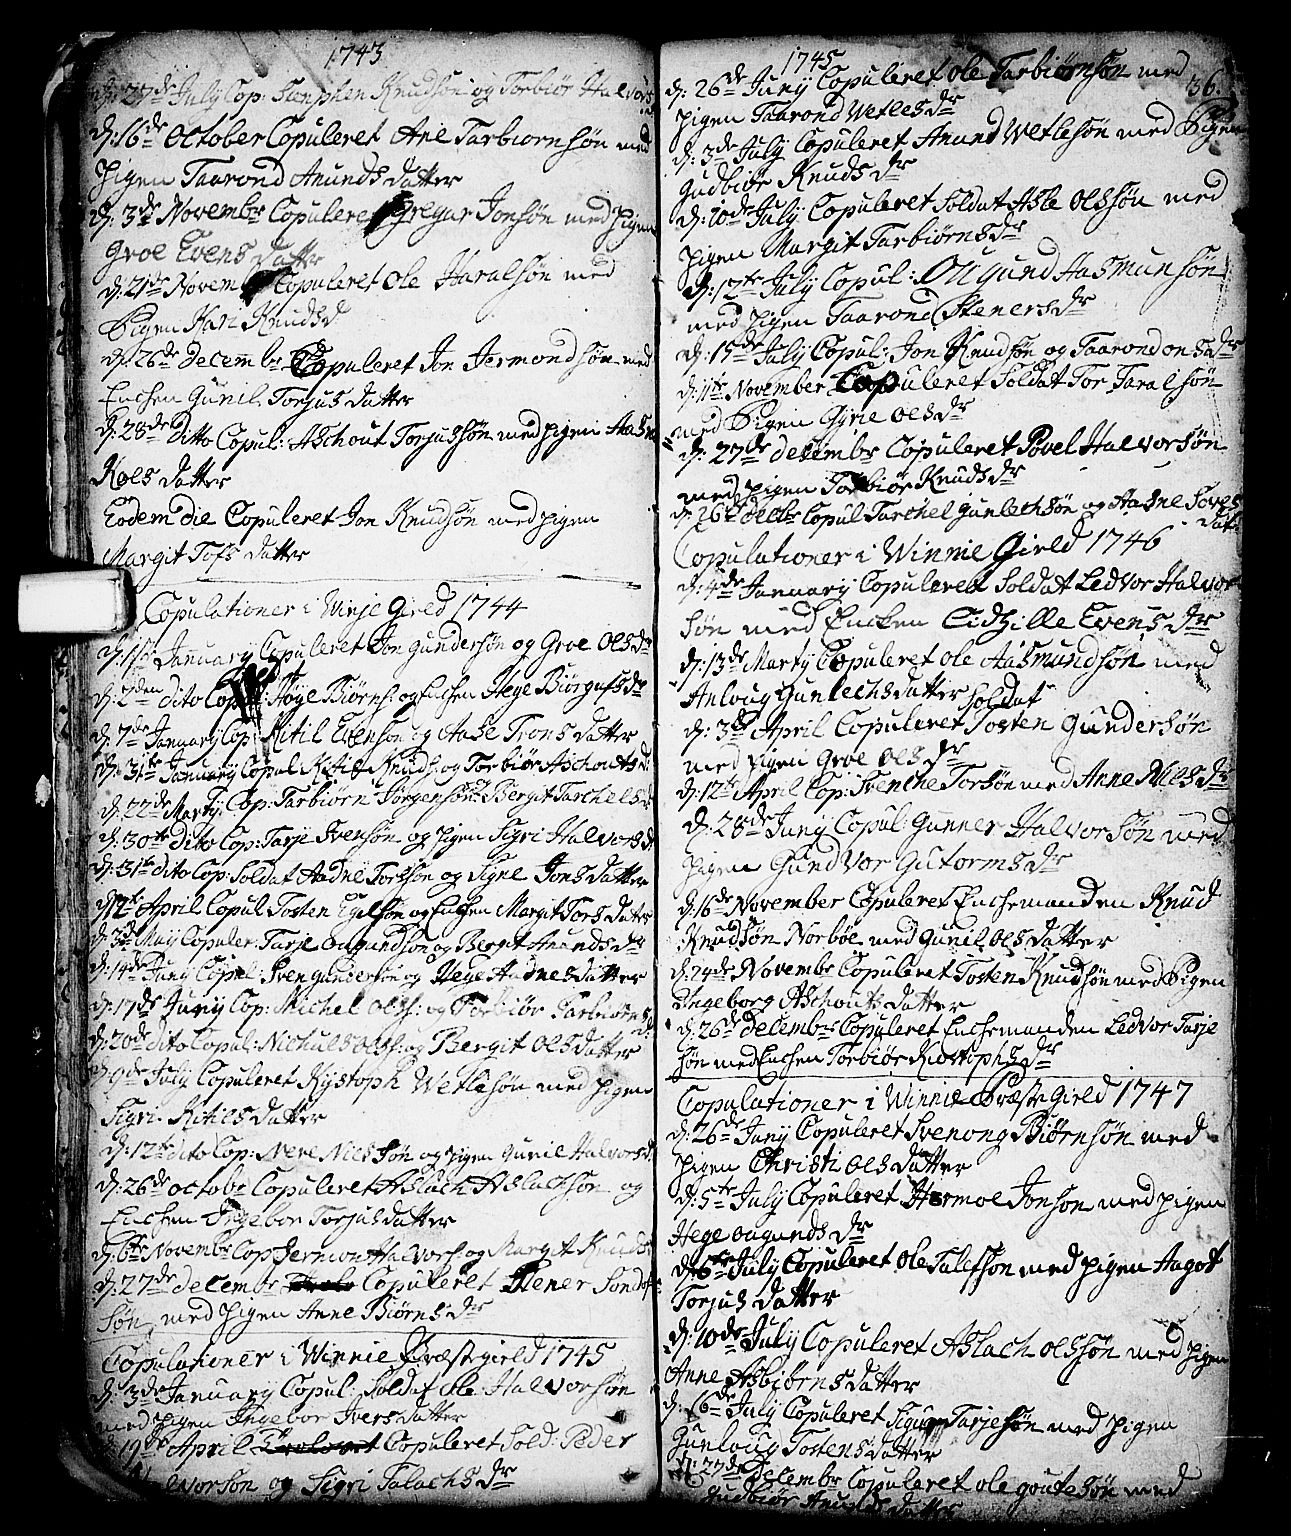 1743
d: 27de July Cop: Knudsøn og Torbiør Halvors
d: 16de October Copuleret Are Tarbiornsøn med
pigen Taarond Anunds datter
d: 3de Novembr Copuleret Gregar Jonsøn med pigen
Groe Evens datter
d: 21de Novemb Copuleret Ole Haralsøn med
Pigen Kari Knudsd
d: 26de decembr Copuleret Jon Jermondsøn med
Enchen Gunil Torjus datter
d: 28de ditto Copul: Aschout Torjussøn med pigen
Roes datter
Eodem die Copuleret Jon Knudsøn med pigen
Margit Tofs datter
Copulationer i Vinje Gield 1744
d: 1ste January Copuleret Jon Gundersøn og Groe Olsdr
d: 2den dito Cop: Høye Biørns: og Enchen Hege Biørgufsdr
d: 7de January Cop: Kitil Evensøn og Aase Trons datter
d: 31te January Copul Kitil Knuds: og Torbiør Aschoutsd:
d: 22de Marty: Cop: Tarbiørn Jørgensøn Bergit Tarchelsdr
d: 30te dito Cop: Tarje Svensøn og pigen Sigri Halvorsd
d: 31te dito Cop: Soldat Aadne Torssøn og Signe Jons datter
d: 12te April Copul Tosten Egilsøn og Enchen Margit Tors datter
d: 3de May Copuler: Tarje Ougundsøn og Bergit Anundsdr
d: 14de Juny Copul: Sven Gundersøn og Hege Aadnes datter
d: 17de Juny Cop: Michel Olss: og Torbiør Tarbiørnsd:
d: 20de dito Copul: Nichuls Olss: og Bergit Ols datter
d: 9de July Copuleret Kystoph Wetlesøn med pigen
Sigri Kitils datter
d: 12te dito Cop: Nere Nielssøn og pigen Gunil Halvorsd:
d: 26de octobr Copuleret Aslach Aslachsøn og
Enchen Ingebor Torjusdatter
d: 6te Novembr Cop Jermon Halvors: og Margit Knudsdr
d: 27de decembr Copuleret Stener Sondre
søn med pigen Anne Biørnsdr
Copulationer i Winnie Præstegield 1745
d: 3de January Copul: Soldat Ole Halvorsøn
med pigen Ingebor Ivers datter
19de April Copuleret Sold: Peder
Halvorsøn og Sigri Talachsdr
1745
36.
d: 26de Juny Copuleret Ole Tarbiørnsøn med
pigen Taarond Wetlesdr
d: 3de July Copuleret Anund Wetlesøn med Pigen
Gudbiør Knudsdr
d: 10de July Copuleret Soldat Asle Olssøn med
pigen Margit Tarbiørnsdr
d: 12te July Copul: Ougund Aasmunsøn
med pigen Taarond Stenersdr
d: 15de July Copul: Jon Knudsøn og Taarond
d: 11te November Copuleret Soldat Tor Taralsøn
med Pigen Gyrie Olsdr
d: 27de decembr Copuleret Povel Halvorsøn
med pigen Torbiør Knudsdr
d: 26te decbr Copul Tarchel Gunlechsøn og Aasne Toresdatr
Copulationer i Winnie Gield 1746
d: 4de January Copuleret Soldat Ledvor Halvor
søn med Encken Sidzille Evensdr
d: 13de Marty Copuleret Ole Aasmundsøn med
Anloug Gunlechs datter
Soldat
d: 3de April Copuleret Tosten Gundersøn
med pigen Groe Olsdr
d: 12te April Cop: Svenche Torsøn med Anne Nielsdr
d: 28de Juny Copul: Gunner Halvorsøn med
pigen Gundvor Gutormsdr
d: 16de November Copuleret Enchemanden Knud
Knudsøn Norbøe med Gunil Ols datter
d: 24de Novembr Copuleret Tosten Knudsøn med Pigen
Ingeborg Aschouts datter
d: 26de decembr Copuleret Enchemanden Ledvor Tarje
søn med Enchen Torbiør Kiostophsdr
Copulationer i Winnie Præste Gield 1747
d: 26de Juny Copuleret Svenong Biørnsøn med
pigen Christi Ols datter
d: 5te July Copuleret Hermoe Jonsøn med pigen
Hege Ougundsdr
d: 6te July Copuleret Ole Talefsøn med pigen Aagot
Torjus datter
d: 10de July Copuleret Aslach Olssøn med pigen
Anne Asbiørns datter
d: 16de July Copuleret Sigur Tarjesøn med pigen
Gunloug Tostens datter
d: 27de decembr Copuleret Ole Goutesøn med
Gudbiør Anunds datter